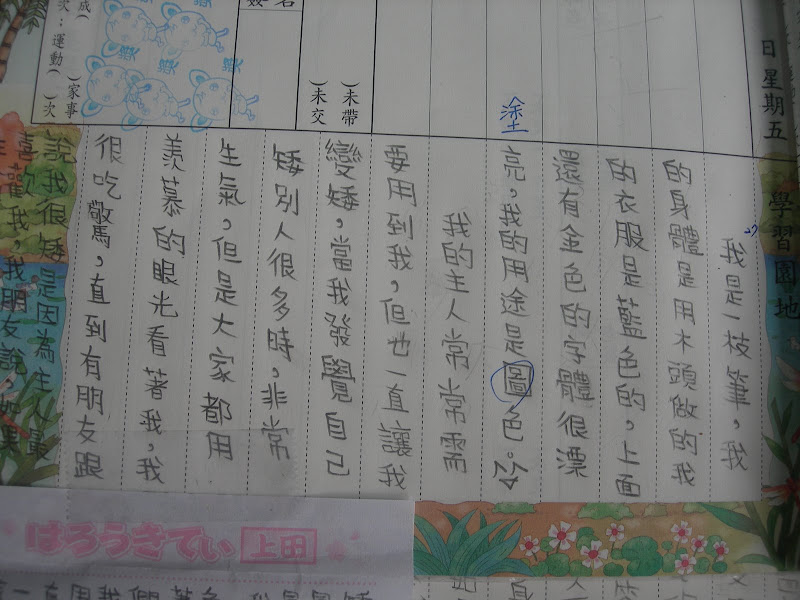 日星期五
學習園地
我是一枝筆，我
的身體是用木頭做的我
的衣服是藍色的，上面
還有金色的字體很漂
塗
亮，我的用途是圖色。
我的主人常常需
要用到我，但也一直讓我
變矮，當我發覺自己
矮別人很多時，非常
生氣，但是大家都用
羨慕的眼光看著我，我
很吃驚，直到有朋友跟
說我很矮是因為主人最
喜歡我，我朋友說
)未帶
)未交
)家事
次：運動( )次
はろうきてぃ 上田